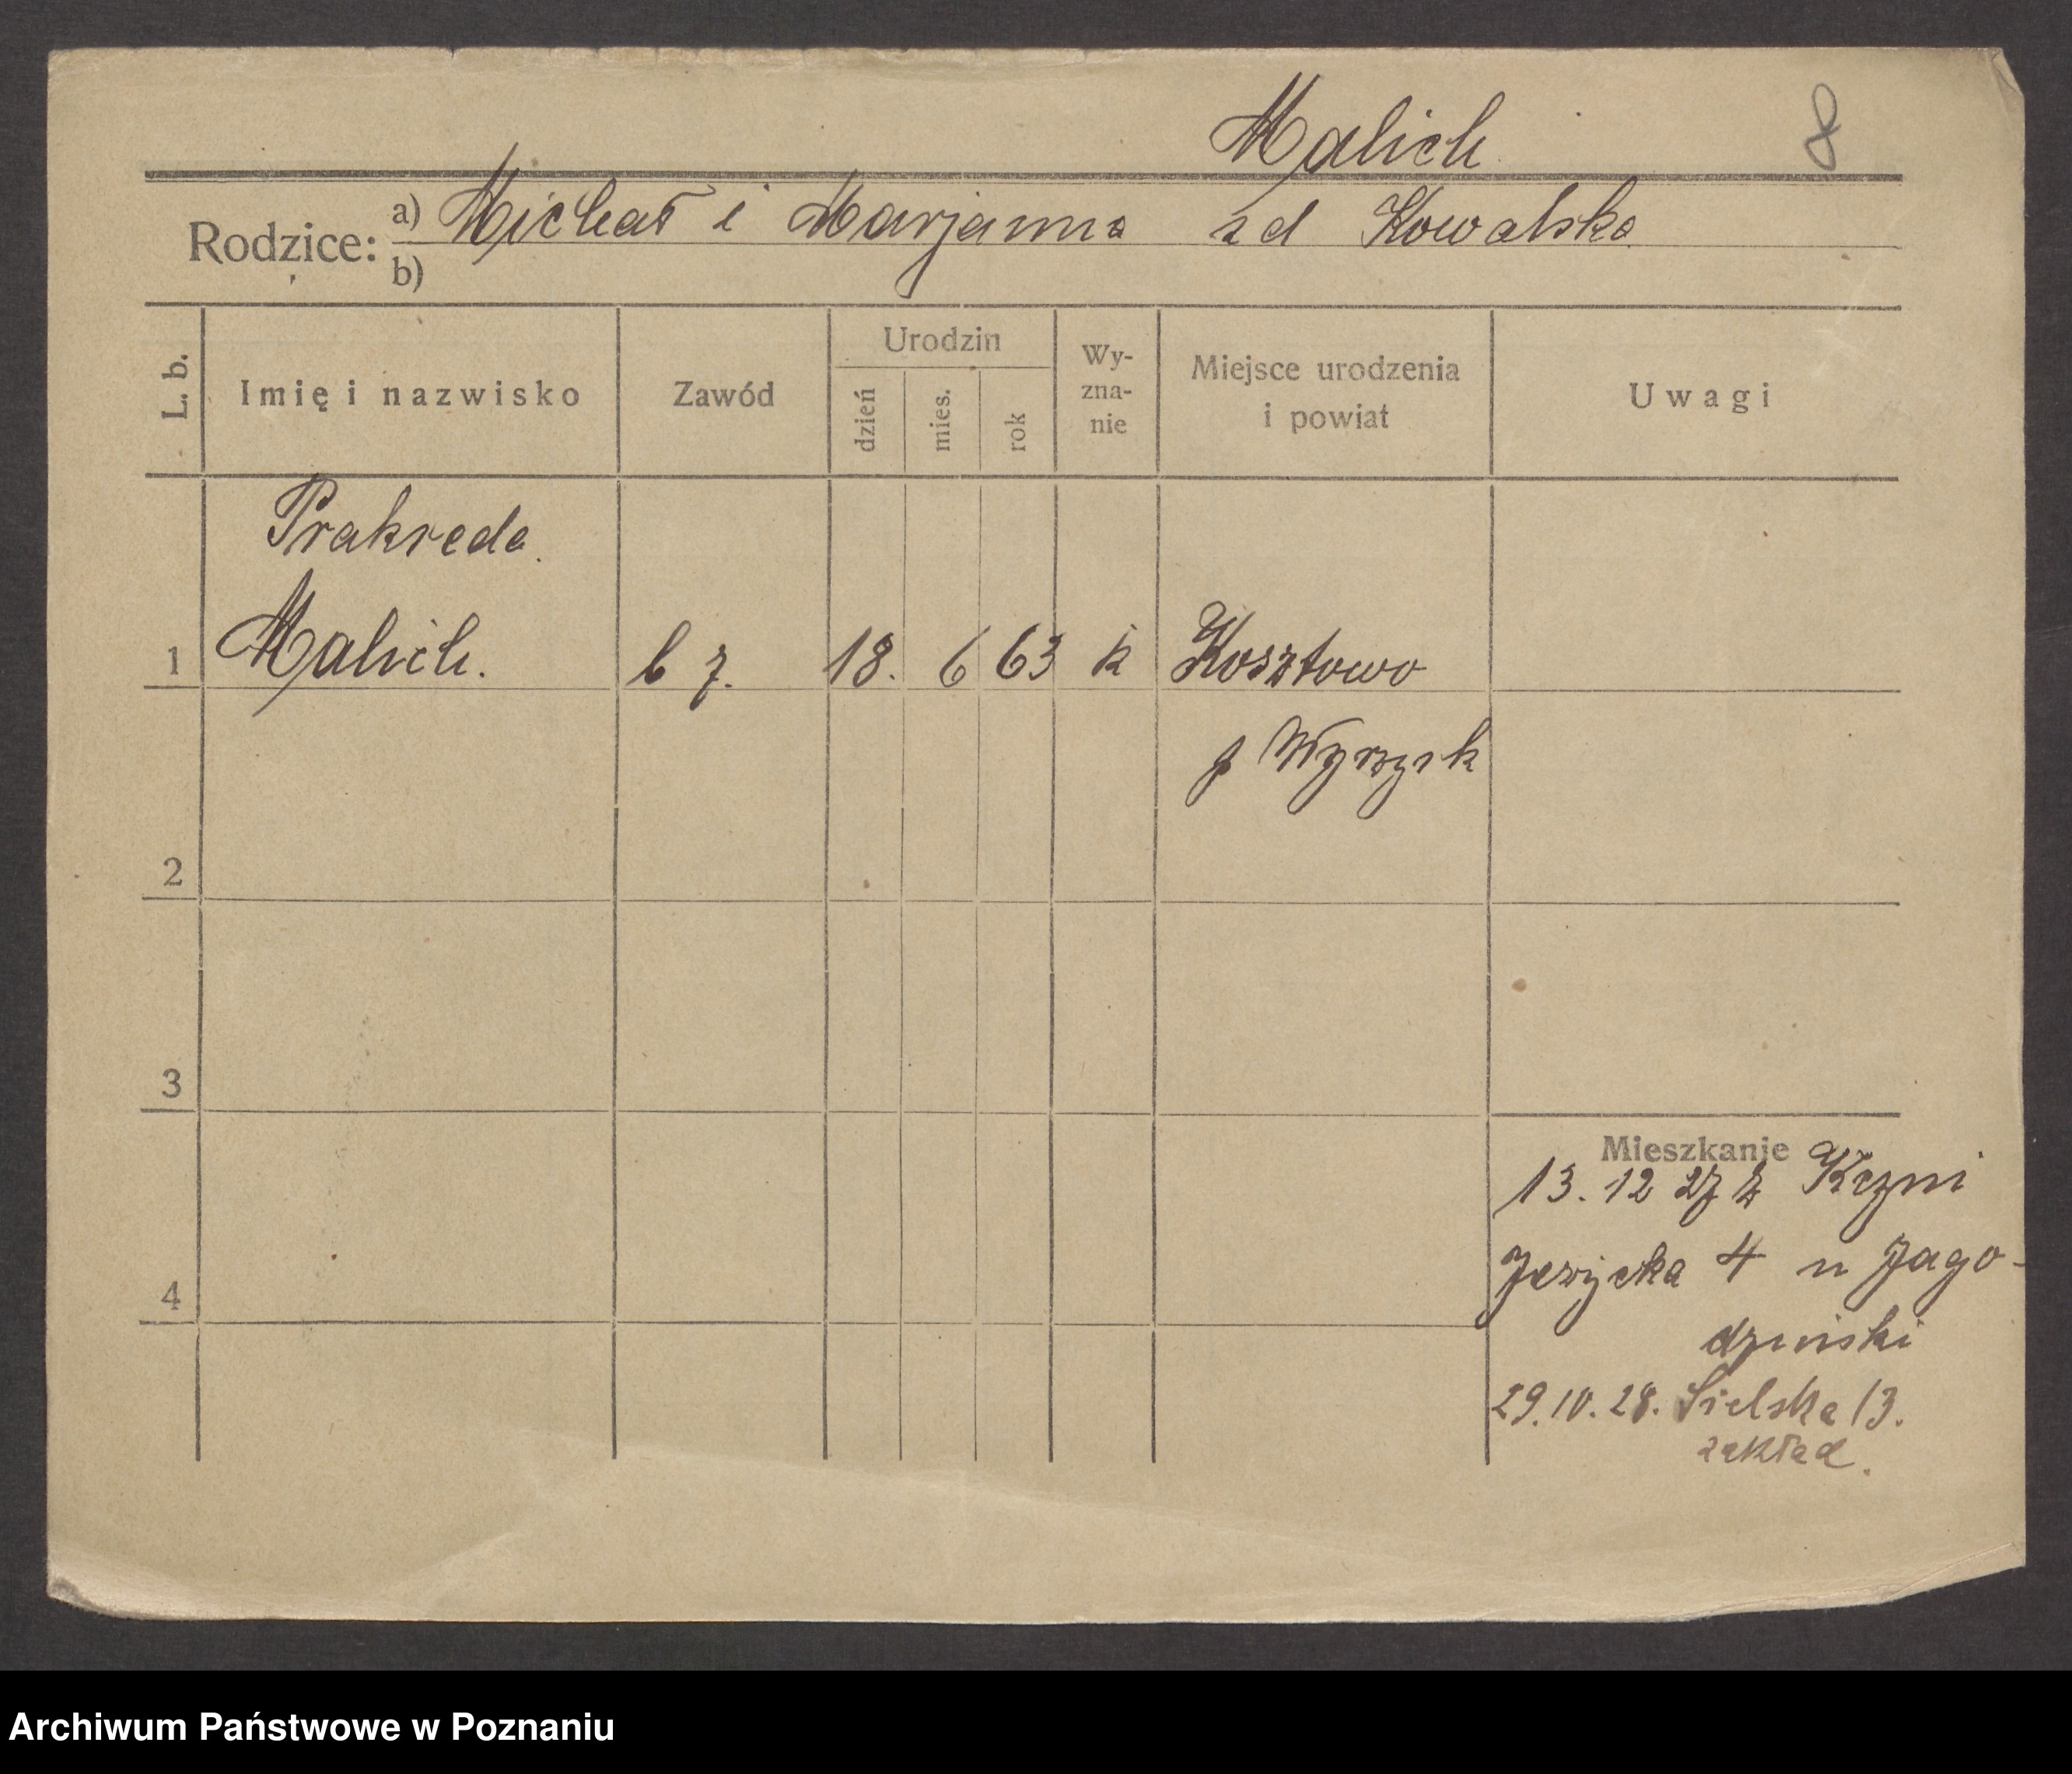 Malich 8
Rodzice: a) Michał i Marjanna zd Kowalska
b)
L. b. Imię i nazwisko Zawód Urodzin dzień mies. rok Wy-zna-nie Miejsce urodzenia i powiat Uwagi
Prakseda
1 Malich. b z. 18. 6 63 k Kosztowo
p Wyrzysk
2
3
Mieszkanie
13. 12 27 z
Jeżycka 4 u Jago-
4
dziński
29. 10. 28. Sielska 13.
zakład.
Archiwum Państwowe w Poznaniu